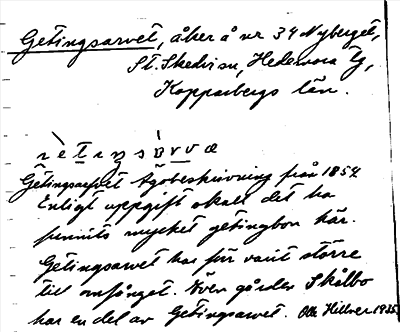 Getingsarvet, åker å nr 34 Nyberget,
St. Skedvi sn, Hedemora tg,
Kopparbergs län.
Getingsarvet Ägobeskrivning från 1857
Enligt uppgift skall det ha
funnits mycket getingbon här.
Getingsarvet har förr varit större
till omfånget. Även gården Skålbo
har en del av Getingsarvet. Olle Hillver 1935